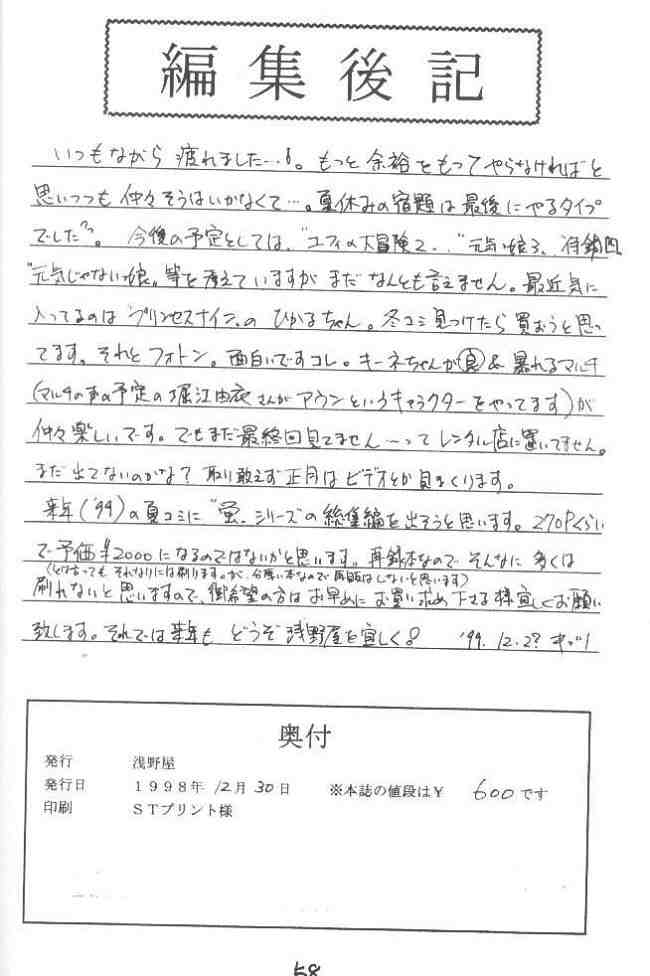 編集後記
いつもながら 疲れました…。もっと 余裕をもって やらなければと
思いつつも 仲々そうはいかなくて…。夏休みの宿題は最後にやるタイプ
でした。 今後の予定としては、"ユフィの大冒険2" "元気な娘3、
"元気じゃない娘" 等を考えていますが まだ なんとも言えません。最近気に
入ってるのは"プリンセスナイン"の ひかるちゃん。冬コミ見つけたら買おうと思っ
てます。それと フォトン。面白いですコレ。キーネちゃんが㊀良 & 暴れるマルチ
(マルチの声の予定の 堀江由衣さんが アウンというキャラクターをやってます)が
仲々楽しいです。でもまだ最終回見てません…って レンタル店に置いてません。
まだ出てないのかな? 取り敢えず正月はビデオとか見まくります。
来年('99)の夏コミに"蛍"シリーズの総集編を出そうと思います。270Pくらい
で予価¥2000になるのではないかと思います。再録本なので そんなに 多くは
(とは言っても それなりには刷りますが、分厚い本なので再販はしないと思います)
刷れないと思いますので、御希望の方は お早めに お買い求め下さる様宜しくお願い
致します。それでは来年も どうぞ 浅野屋を宜しく。 '99.12.27
奥付
発行 浅野屋
発行日 1998年 12月 30日 ※本誌の値段は¥ 600です
印刷 STプリント様
58